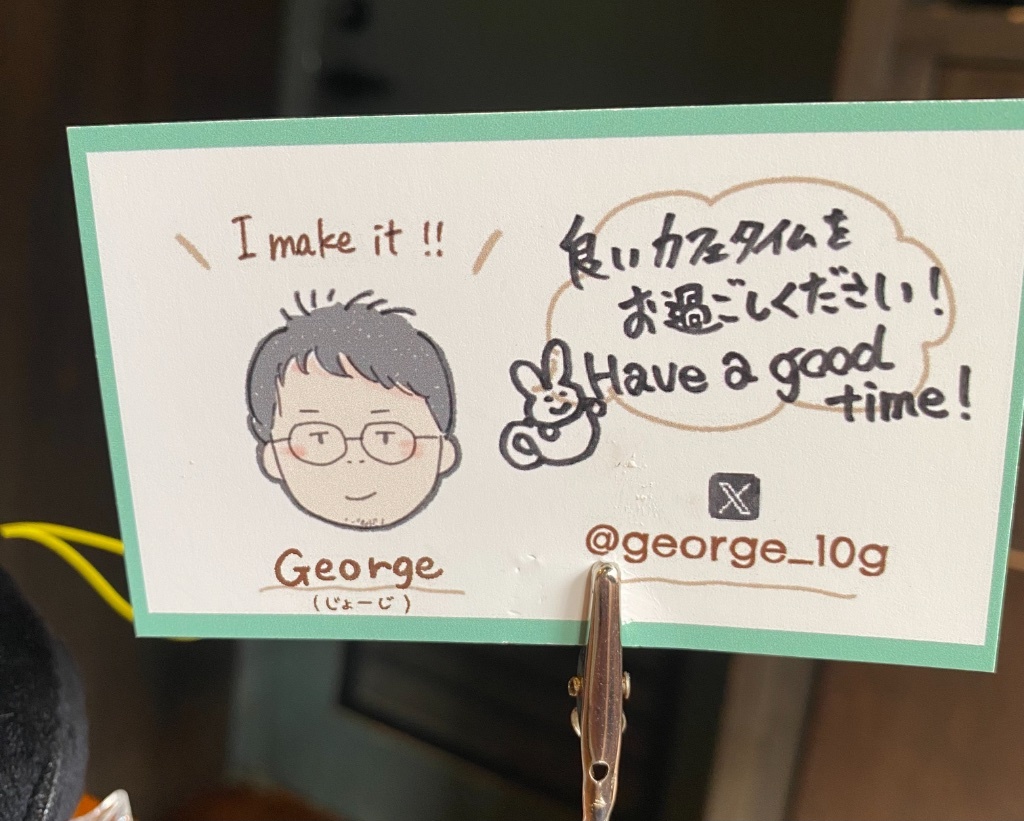 I make it !!
良いカフェタイムを
お過ごしください!
Have a good
time!
George
(じょーじ)
X
@george_10g